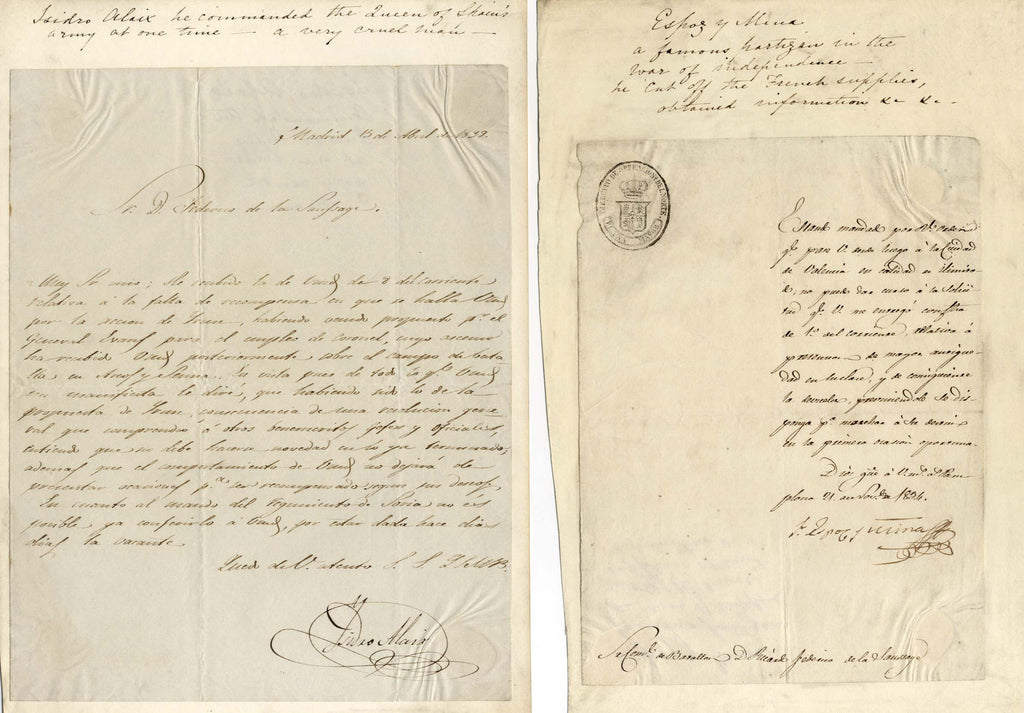 Isidro Alaix he commanded the Queen of Spain's
army at one time — a very cruel man —
Madrid 13 de Abril de
Sr. D. Federico de la Saussaye.
Muy Sr mio; He recibido la de Vmd de 8 del corriente
relativa á la falta de recompensa en que se halla Vmd
por la accion de Irun, habiendo venido propuesto pr. el
General Evans para el empleo de Coronel, cuyo ascenso
ha recibido Vmd posteriormente sobre el campo de bata
lla en y En vista pues de todo lo qe. Vmd
me manifiesta le diré, que habiendo sido lo de la
propuesta de Irun, consecuencia de una resolucion gene
ral que comprendió á otros benemeritos gefes y oficiales,
entiendo que no debe hacerse novedad en lo ya terminado;
ademas pues el comportamiento de Vmd no dejará de
presentar ocasiones pa. ser recompensado segun sus deseos.
En cuanto al mando del Regimiento de Soria no és
posible ya conferirlo á Vmd, por estar dada hace dias
dias la vacante.
Quedo de V. atento S. S. Q. B. S. M.
Isidro Alaix
Espoz y Mina
a famous partizan in the
war of independence —
he cut off the French supplies,
obtained information &c &c —
EJERCITO DE OPERACIONES DEL NORTE
Estando mandado por Rl. orden
qe. pase V. desde luego á la Ciudad
de Valencia en calidad de ilimita
do, no puedo dar curso á la solici
tud qe. V. me entregó con fha
de 1o. del corriente relativa á
de mayor antigue
dad en su clase, y de consiguiente
la devuelvo, previniendole se dis
ponga pa. marchar á su destino
en la primera ocasion oportuna.
Dios gue á V. ms. as. Pam
plona 21 de 1834.
Fo. Espoz y Mina
Sr. Comte. de Batallon D. Federico de la Saussaye